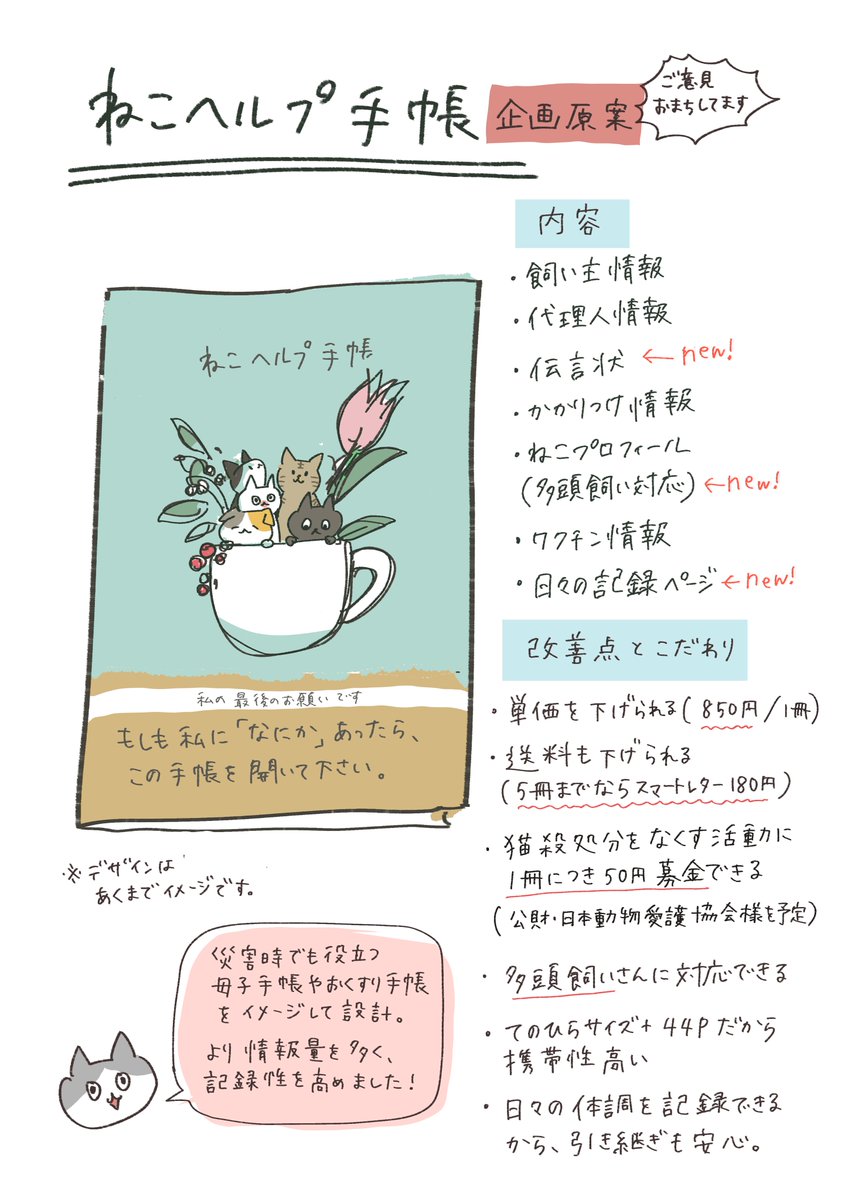 ねこヘルプ手帳
企画原案
ご意見
おまちしてます
ねこヘルプ手帳
私の最後のお願いです
もしも私に「なにか」あったら、
この手帳を開いて下さい。
※デザインは
あくまでイメージです。
災害時でも役立つ
母子手帳やおくすり手帳
をイメージして設計。
より情報量を多く、
記録性を高めました！
内容
・飼い主情報
・代理人情報
・伝言状 ←new!
・かかりつけ情報
・ねこプロフィール
(多頭飼い対応) ←new!
・ワクチン情報
・日々の記録ページ ←new!
改善点とこだわり
・単価を下げられる(850円/1冊)
・送料も下げられる
(5冊までならスマートレター180円)
・猫殺処分をなくす活動に
1冊につき50円募金できる
(公財・日本動物愛護協会様を予定)
・多頭飼いさんに対応できる
・てのひらサイズ+44Pだから
携帯性高い
・日々の体調を記録できる
から、引き継ぎも安心。